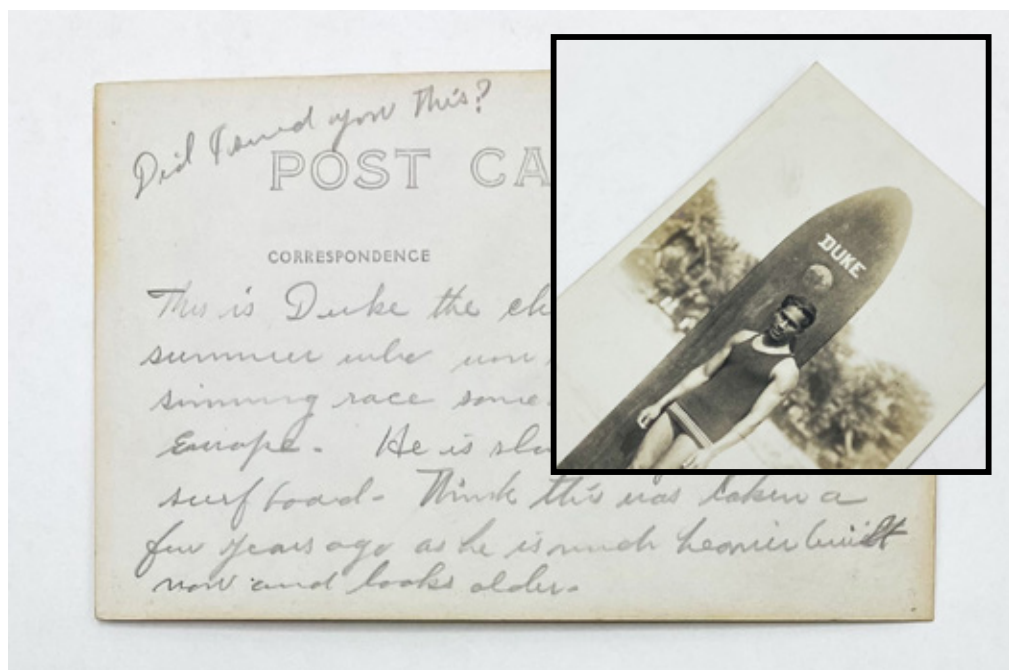 Did I send you this?
POST CA
CORRESPONDENCE
This is Duke the ch
summer who won
simming race some
Europe. He is
surfboard. Think this was taken a
few years ago as he is much heavier built
now and looks older.
DUKE